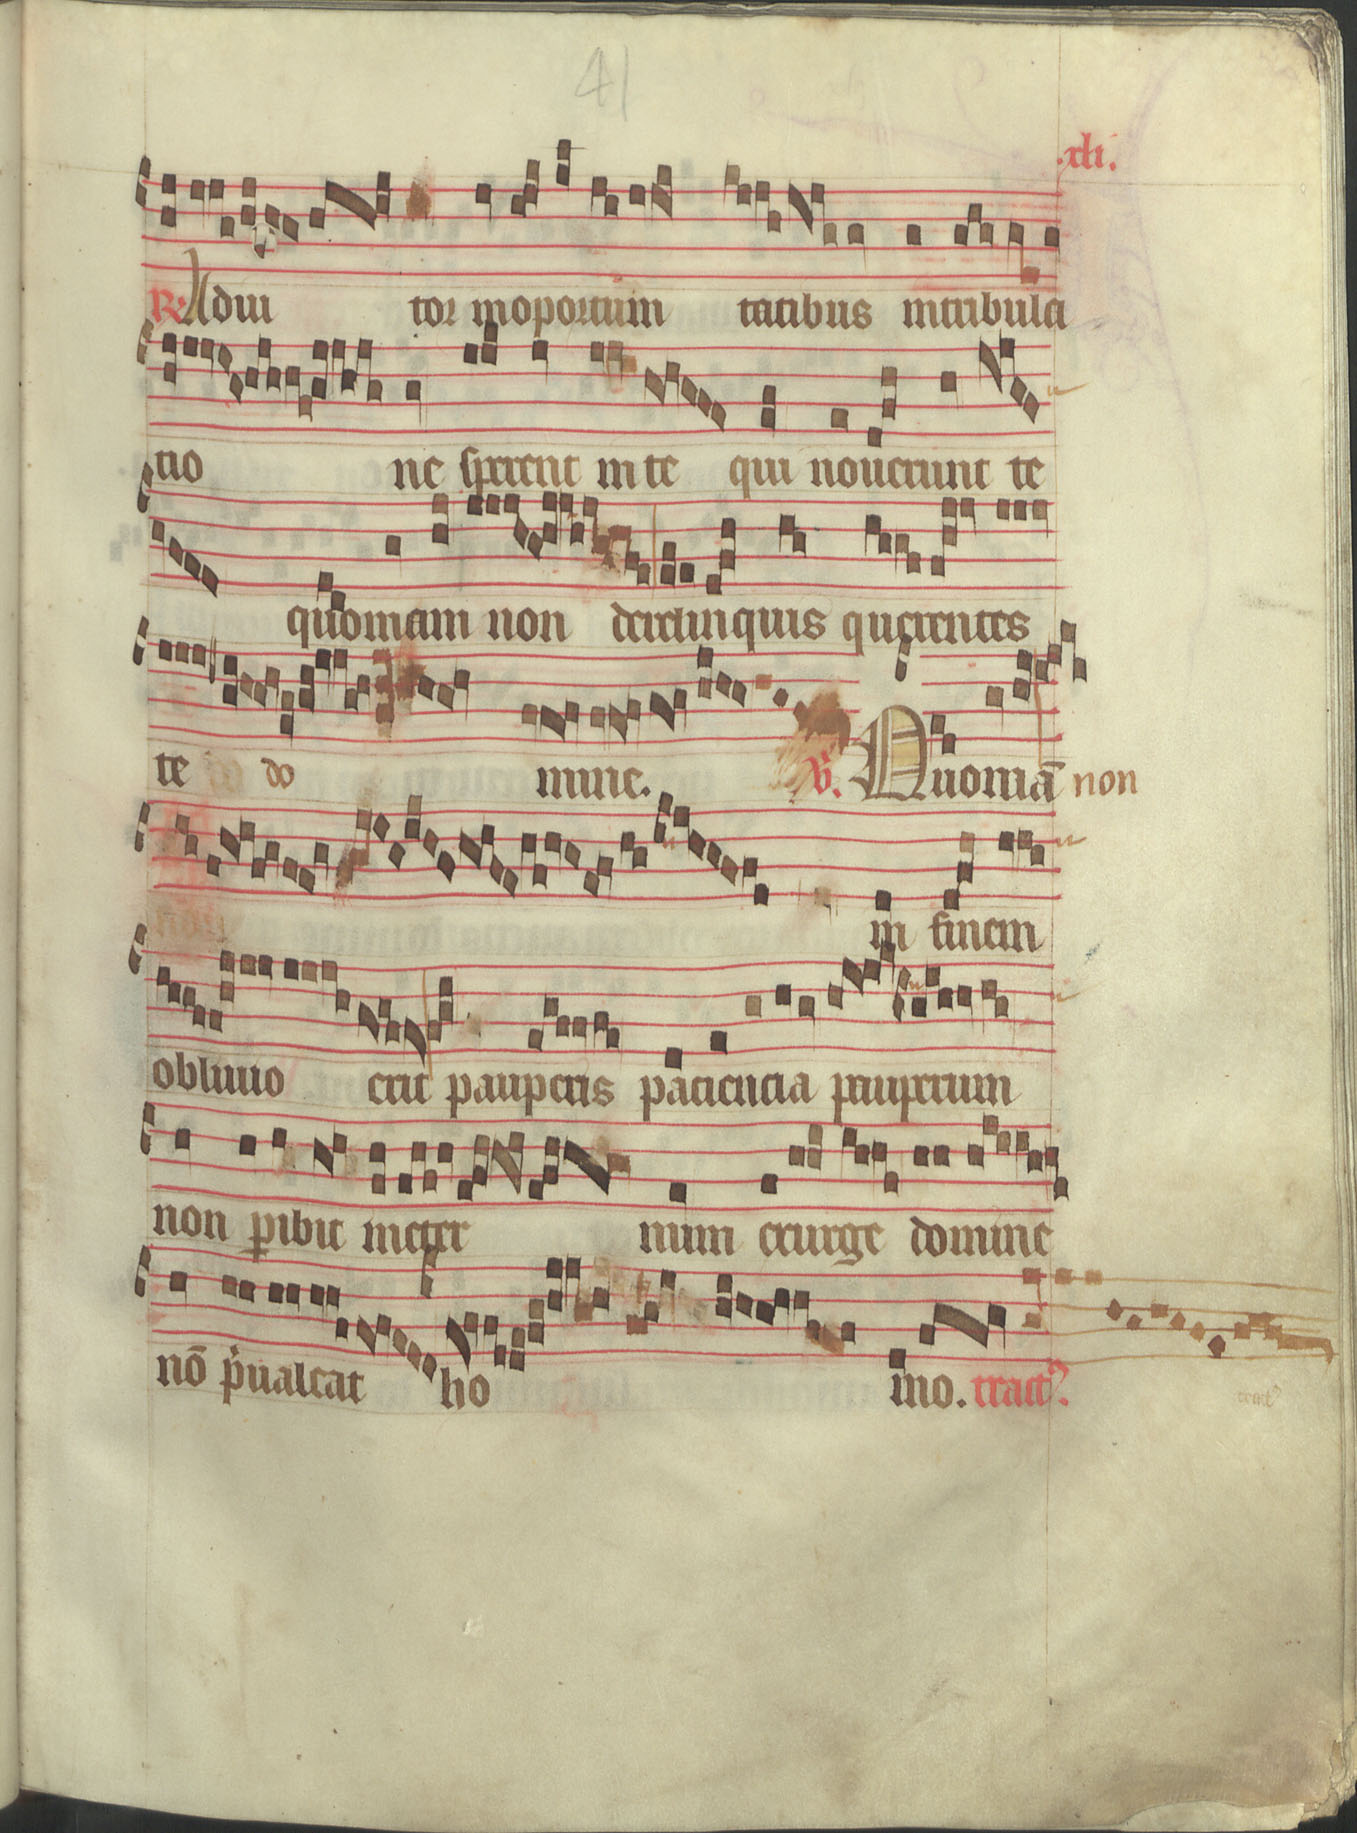 41
.xli.
R. Adiu tor inoportuni tatibus intribula
tio ne sperent in te qui nouerunt te
quoniam non derelinquis querentes
te do mine. V. Quoniā non
in finem
obliuio erit pauperis paciencia pauperum
non pibit ineter num exurge domine
nō pualeat ho mo. tract9.
tract9